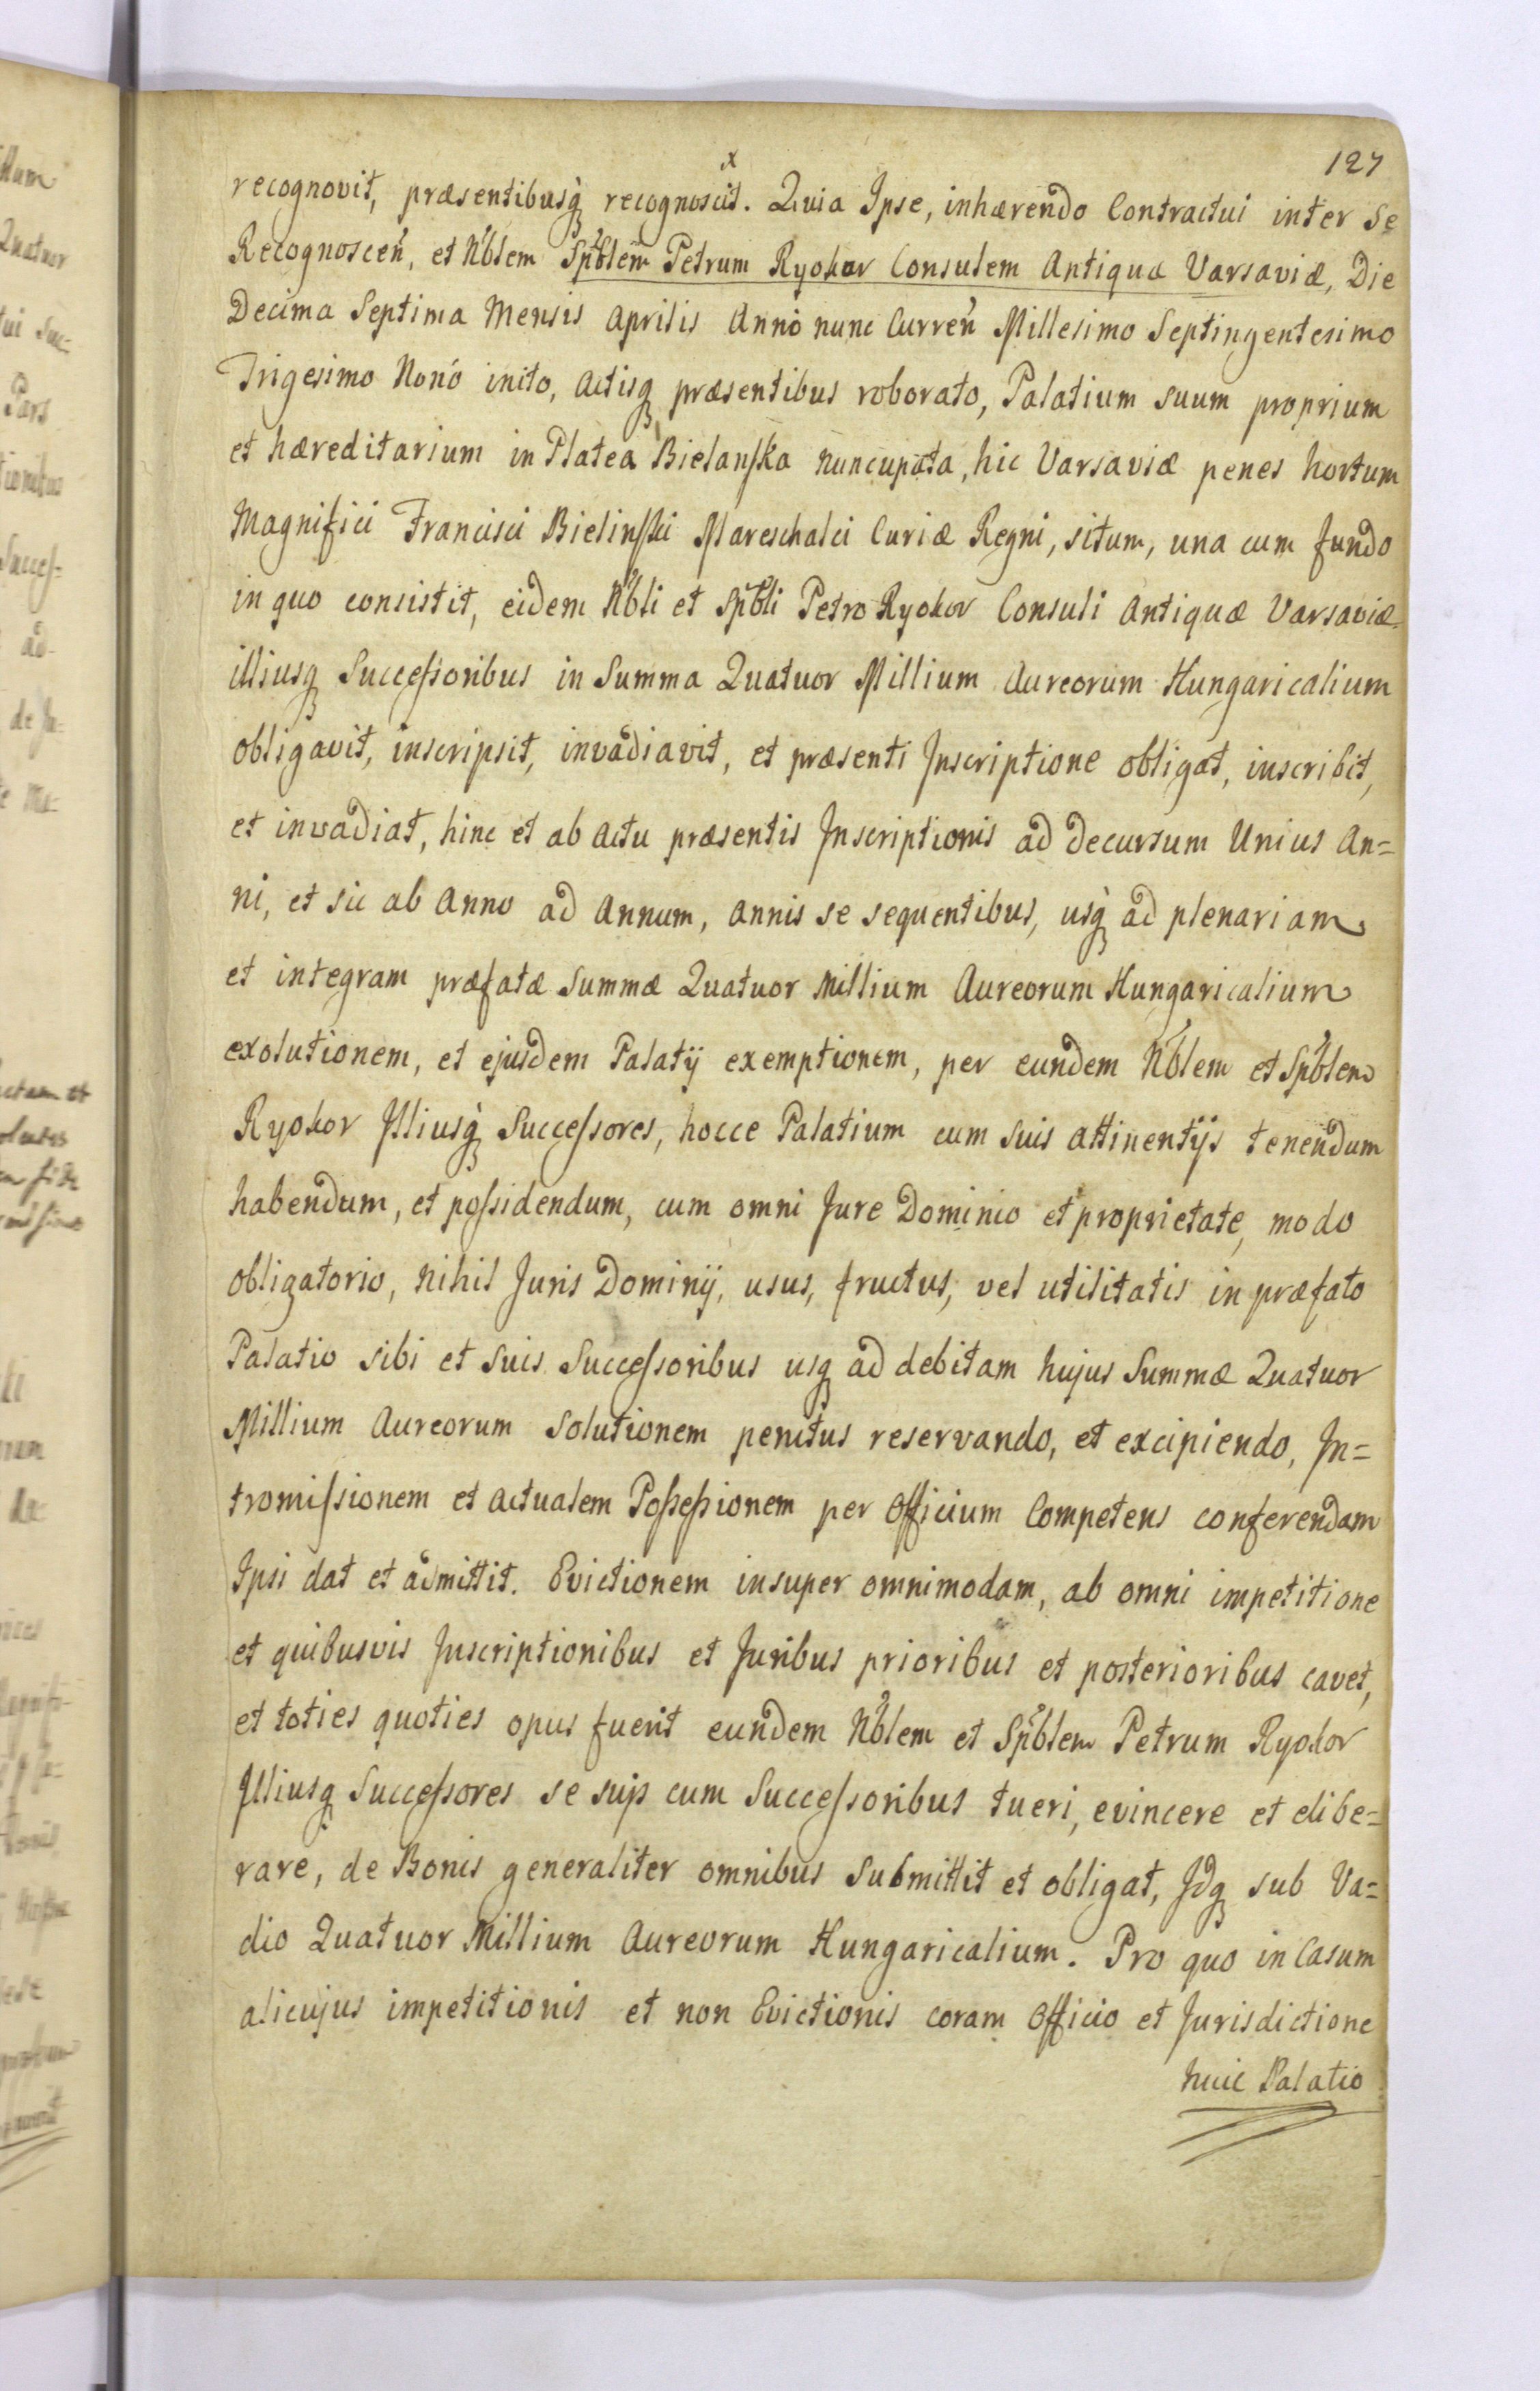 127
recognovit, præsentibusq̀ recognoscit. Quia Ipse, inhærendo Contractui inter Se
Recognosceñ, et Nblem Spblem Petrum Ryokor Consulem Antiquæ Varsaviæ, Die
Decima Septima Mensis Aprilis Anno nunc Curreñ Millesimo Septingentesimo
Trigesimo Nonó inito, Actisq præsentibus roborato, Palatium suum proprium
et hæreditarium in Platea Bielanſka nuncupata, hic Varsaviæ penes hortum
Magnifici Francisci Bielinſki Mareschalci Curiæ Regni, situm, una cum fundo
in quo consistit, eidem Nbli et Spbli Petro Ryokor Consuli Antiquæ Varsaviæ
illiusq Succeſsoribus in Summa Quatuor Millium Aureorum Hungaricalium
obligavit, inscripsit, invadiavit, et præsenti Inscriptione obligat, inscribit,
et invadiat, hinc et ab actu præsentis Inscriptionis ad decursum Unius An=
ni, et sic ab Anno ad Annum, annis se sequentibus, usq̀ ad plenariam
et integram præfatæ Summæ Quatuor Millium Aureorum Hungaricalium
exolutionem, et ejusdem Palatÿ exemptionem, per eundem Nblem et Spblem
Ryokor Illiusq̀ Succeſsores, hocce Palatium cum suis attinentÿs tenendum
habendum, et poſsidendum, cum omni Jure Dominio et proprietate, modo
obligatorio, nihil Juris Dominÿ, usus, fructus, vel utilitatis in præfato
Palatio sibi et suis Succeſsoribus usq ad debitam hujus Summæ Quatuor
Millium Aureorum Solutionem penitus reservando, et excipiendo, In=
tromiſsionem et actualem Poſseſsionem per Officium Competens conferendam
Ipsi dat et admittit. Evictionem insuper omnimodam, ab omni impetitione
et quibusvis Inscriptionibus et Juribus prioribus et posterioribus cavet,
et toties quoties opus fuerit eundem Nblem et Spblem Petrum Ryokor
Illiusq Succeſsores se suis cum Succeſsoribus tueri, evincere et elibe=
rare, de Bonis generaliter omnibus Submittit et obligat, Idq sub Va=
dio Quatuor Millium Aureorum Hungaricalium. Pro quo in Casum
alicujus impetitionis et non Evictionis coram Officio et Jurisdictione
huic Palatio